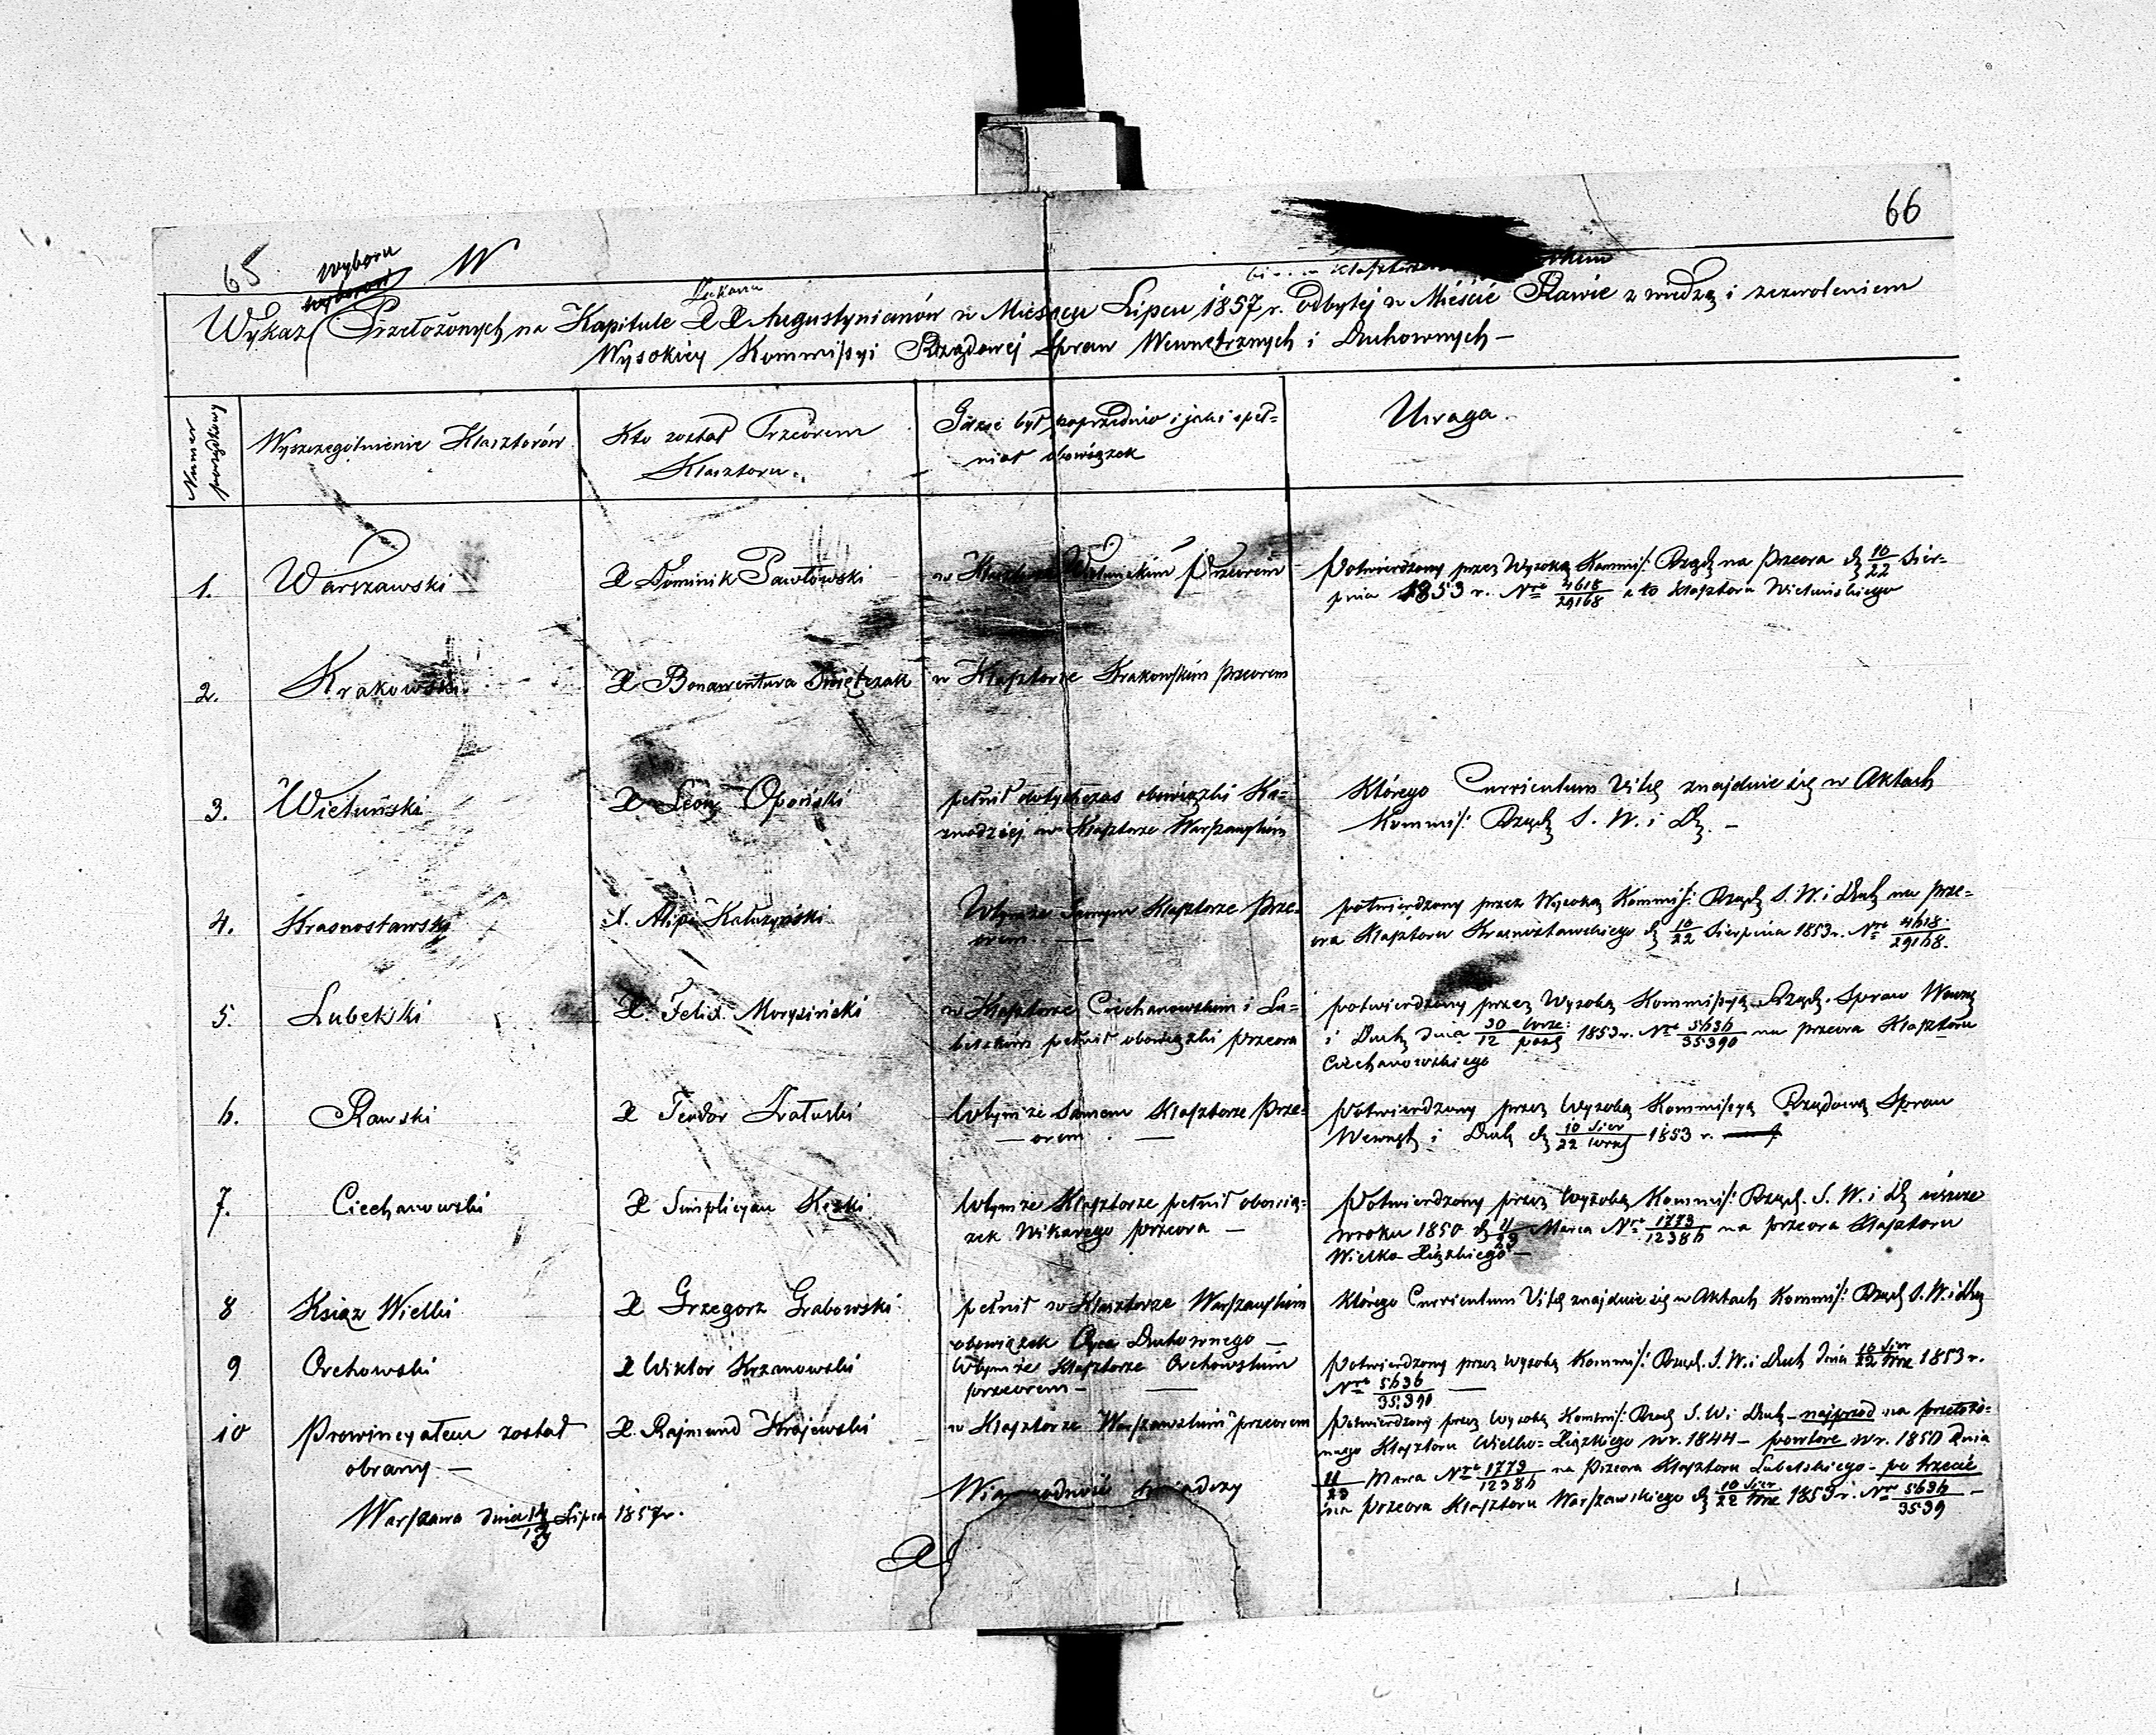 65
66
Wyboru
W
Wykaz Przełożonych na Kapitule XX Augustynianów w Miesiącu Lipcu 1857 r. odbytej w Mieście Rawie z wiedzą i zezwoleniem
Wysokiey Kommissyi Rządowej Spraw Wewnętrznych i Duchownych –
Numer porządkowy
Wyszczegolnienie Klasztorów
Kto został Przeorem
Klasztoru.
Gdzie był poprzednio i jaki speł=
niał obowiązek
Uwaga.
1. Warszawski
X Dominik Pawłowski
w Klasztorze Wieluńskim Przeorem
Potwierdzony przez Wysoką Kommis/: Rządz na Przeora d 10/22 Sier=
pnia 1853 r. Nro 4618/29168 a to Klasztoru Wieluńskiego
2. Krakowski
X Bonawentura Świętczak
w Klasztorze Krakowskim przeorem
3. Wieluński
X Leon Opociński
pełnił dotychczas obowiązki Ka=
znodziej w Klasztorze Warszawskim
Którego Curriculum Vitę znajduie się w Aktach
Kommis/: Rządz S. W. i D. –
4. Krasnostawski
X. Alipi Kałuzyński
Wtymże Samym Klasztorze Prze=
orem. —
potwierdzony przez Wysoką Kommis/: Rządz S. W. i Duch na prze=
ora Klasztoru Krasnostawskiego d 10/22 Sierpnia 1853 r. Nro 4618/29168.
5. Lubelski
X. Felix Morysiński
w Klasztorze Ciechanowskim i Lu=
belskim pełnił obowiązki przeora
potwierdzony przez Wysoką Kommissyą Rządz. Spraw Wewnę
i Duch dnia 30 Wrze:/12 paź 1853 r. Nro 5636/35390 na przeora Klasztoru
Ciechanowskiego
6. Rawski
X Teodor Załuski
Wtymże Samem Klasztorze Prze=
— orem —
Potwierdzony przez Wysoką Kommissyą Rządową Spraw
Wewnęt i Duch d 10 Sier/22 wrześ 1853 r.
7. Ciechanowski
X Simplicyan Keski
Wtymże Klasztorze pełnił obowią=
zek Wikarego przeora —
Potwierdzony przez Wysoką Kommis/: Rządz. S. W. i D ieszcze
wroku 1850 d 11/23 Marca Nro 1773/12386 na przeora Klasztoru
Wielko Xiązkiego –
8 Książ Wielki
X Grzegorz Grabowski
pełnił w Klasztorze Warszawskim
obowiązek Oyca Duchownego —
Którego Curriculum Vitę znajduie się w Aktach Kommis/: Rządz S. W. i Duch
9 Orchowski
X Wiktor Krzanowski
Wtymże Klasztorze Orchowskim
przeorem – —
Potwierdzony przez Wysoką Kommis/: Rządz. S. W. i Duch dnia 10 Sier/22 Wrze 1853 r.
Nro 5636/35390 —
10 Prowincyałem został
obrany. —
X. Rajmund Krajewski
w Klasztorze Warszawskim przeorem
Potwierdzony przez Wysoką Kommis/: Rządz S. W i Duch – najprzod na przełożo=
nego Klasztoru Wielko=Xiązkiego w r. 1844 – powtore w r. 1850 dnia
11/23 Marca Nro 1773/12386 na Przeora Klasztoru Lubelskiego – po trzecie
na przeora Klasztoru Warszawskiego d 10 Sier/22 Wrze 1853 r. Nro 5636/3539 –
Warszawa dnia Lipca 1857 r.